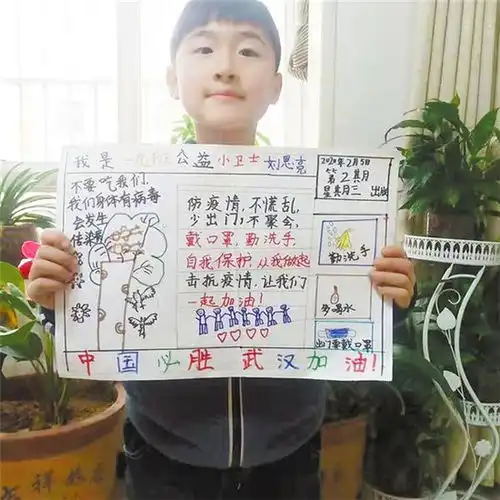 我是 公益小卫士 刘思亮
2020年2月5日
第2期
星期三 出版
不要吃我们,
我们身体有病毒
会发生
传染病
防疫情,不慌乱,
少出门,不聚会,
戴口罩,勤洗手,
自我保护,从我做起
击抗疫情,让我们
一起加油!
勤洗手
多喝水
出门要戴口罩
中国必胜 武汉加油!